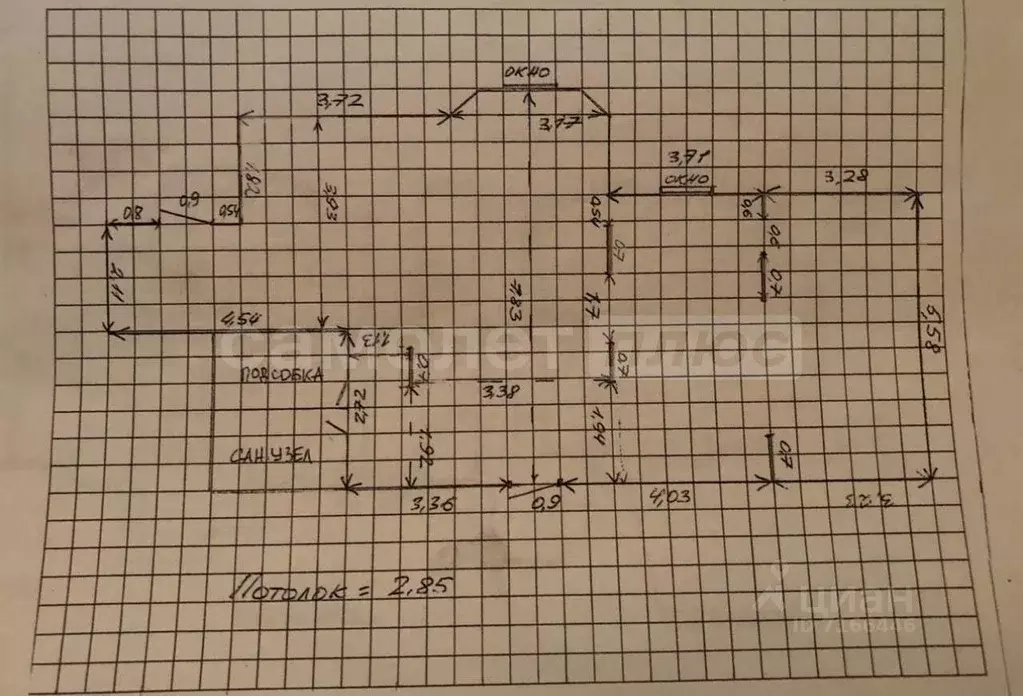 ОКНО
3,72
3,17
1,82
3,93
3,71
ОКНО
3,28
0,8
0,9
0,54
0,54
0,6
0,6
2,11
0,7
0,7
7,83
1,7
5,58
4,54
1,13
самолет плюс
ПОДСОБКА
0,7
0,7
3,38
2,72
САНУЗЕЛ
1,92
1,94
0,7
3,36
0,9
4,03
3,23
ПОТОЛОК = 2,85
циан
ID 7166446